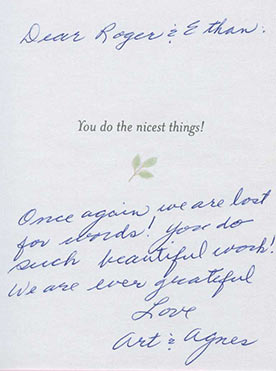 Dear Roger & Ethan:
You do the nicest things!
Once again we are lost
for words! You do
such beautiful work!
We are ever grateful
Love
Art & Agnes